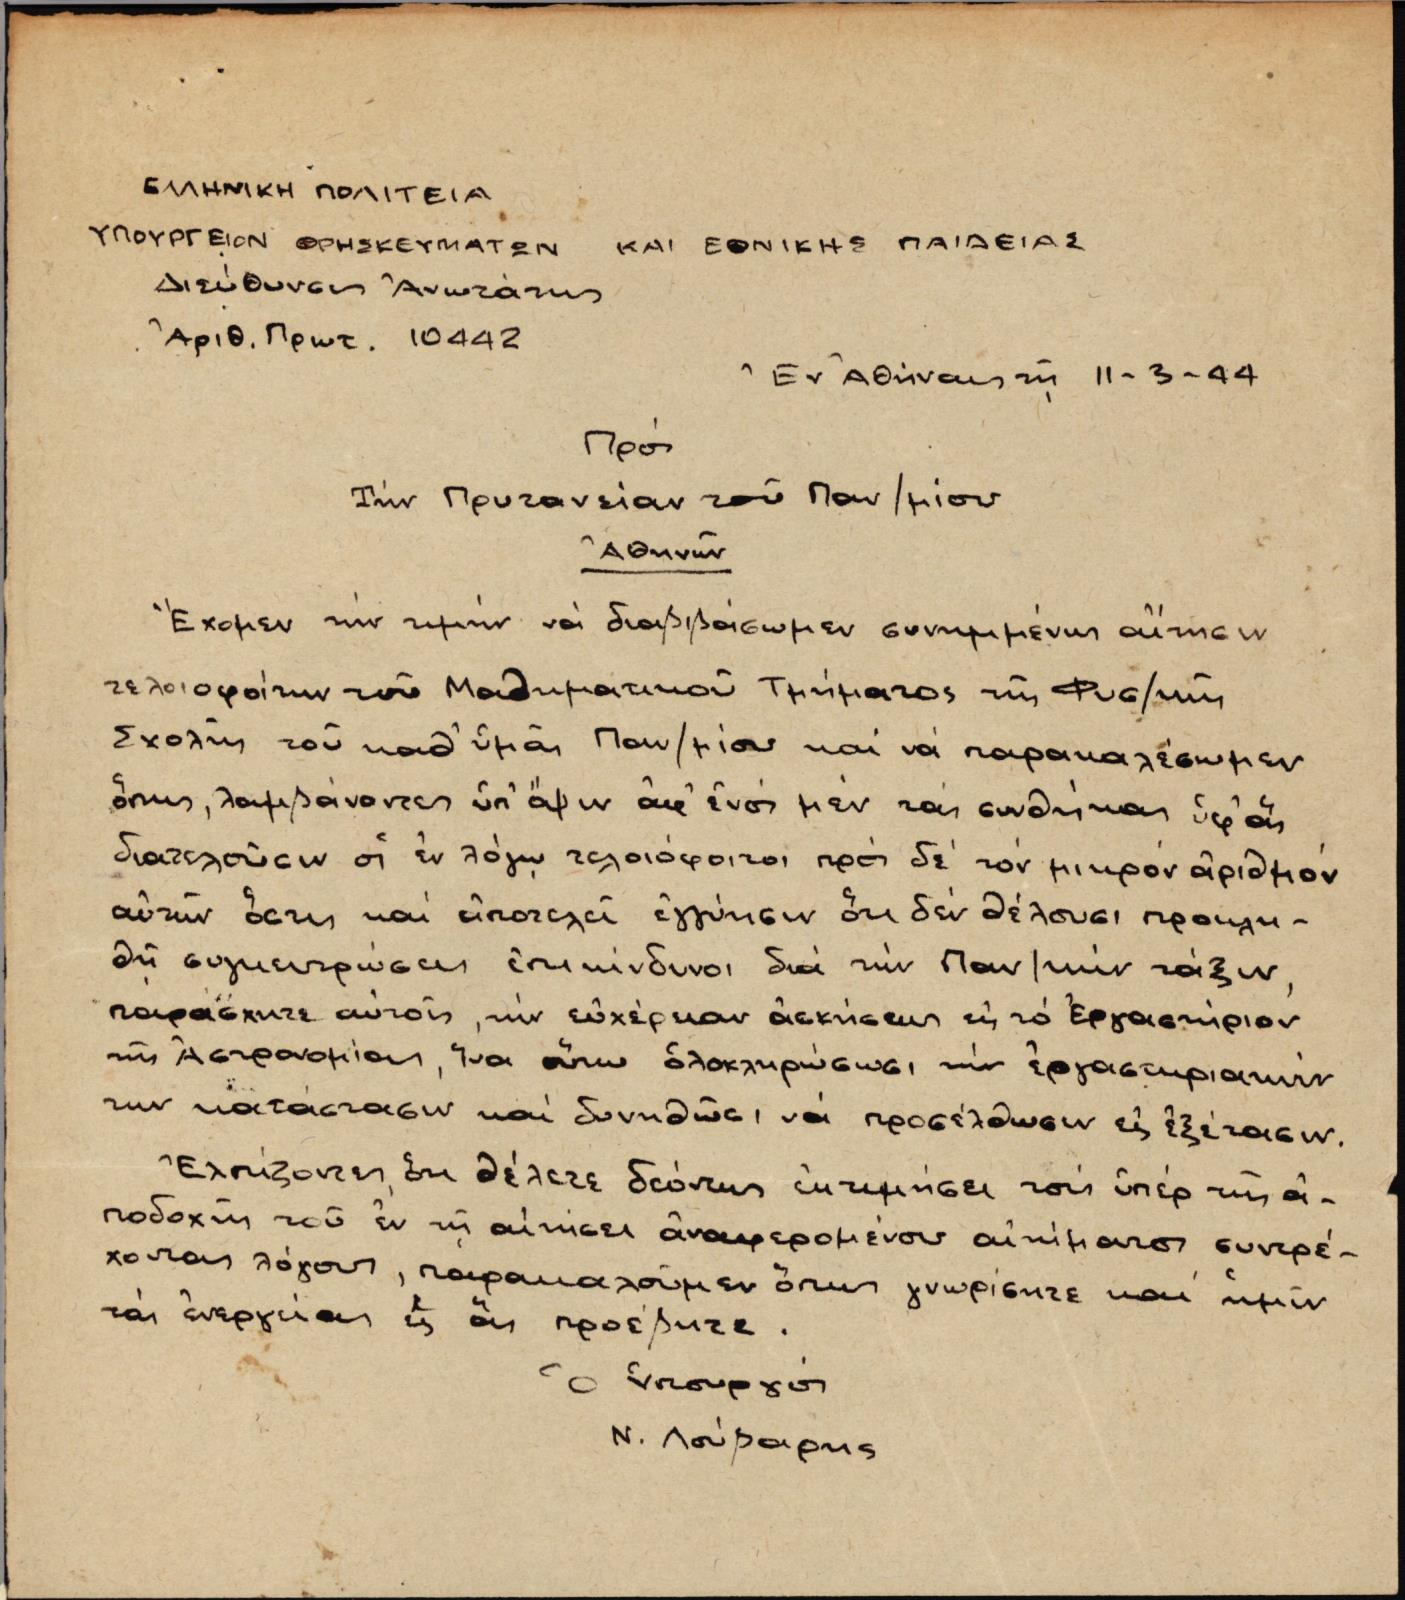 ΕΛΛΗΝΙΚΗ ΠΟΛΙΤΕΙΑ
ΥΠΟΥΡΓΕΙΟΝ ΘΡΗΣΚΕΥΜΑΤΩΝ ΚΑΙ ΕΘΝΙΚΗΣ ΠΑΙΔΕΙΑΣ
Διεύθυνσις Ἀνωτάτης
Ἀριθ. Πρωτ. 10442
Ἐν Ἀθήναις τῇ 11-3-44
Πρός
Τήν Πρυτανείαν τοῦ Παν/μίου
Ἀθηνῶν
Ἔχομεν τήν τιμήν νά διαβιβάσωμεν συνημμένως αἴτησιν
τελοιοφοίτων τοῦ Μαθηματικοῦ Τμήματος τῆς Φυσ/κῆς
Σχολῆς τοῦ καθ' ὑμᾶς Παν/μίου καί νά παρακαλέσωμεν
ὅπως, λαμβάνοντες ὑπ' ὄψιν ἀφ' ἑνός μέν τάς συνθήκας ὑφ' ἅς
διατελοῦσιν οἱ ἐν λόγῳ τελοιόφοιτοι πρός δέ τόν μικρόν ἀριθμόν
αὐτῶν ὅστις καί ἀποτελεῖ ἐγγύησιν ὅτι δέν θέλουσι προκλη-
θῆ συγκεντρώσεις ἐπικίνδυνοι διά τήν Παν/κήν τάξιν,
παράσχητε αὐτοῖς, τήν εὐχέρειαν ἀσκήσεως εἰς τό Ἐργαστήριον
τῆς Ἀστρονομίας, ἵνα οὕτω ὁλοκληρώσωσι τήν ἐργαστηριακήν
των κατάστασιν καί δυνηθῶσι νά προσέλθωσιν εἰς ἐξέτασιν.
Ἐλπίζοντες, ὅτι θέλετε δεόντως ἐκτιμήσει τούς ὑπέρ τῆς ἀ-
ποδοχῆς τοῦ ἐν τῇ αἰτήσει ἀναφερομένου αἰτήματος συντρέ-
χοντας λόγους, παρακαλοῦμεν ὅπως γνωρίσητε καί ἡμῖν
τάς ἐνεργείας εἰς ἅς προέβητε.
Ὁ Ὑπουργός
Ν. Λούβαρης